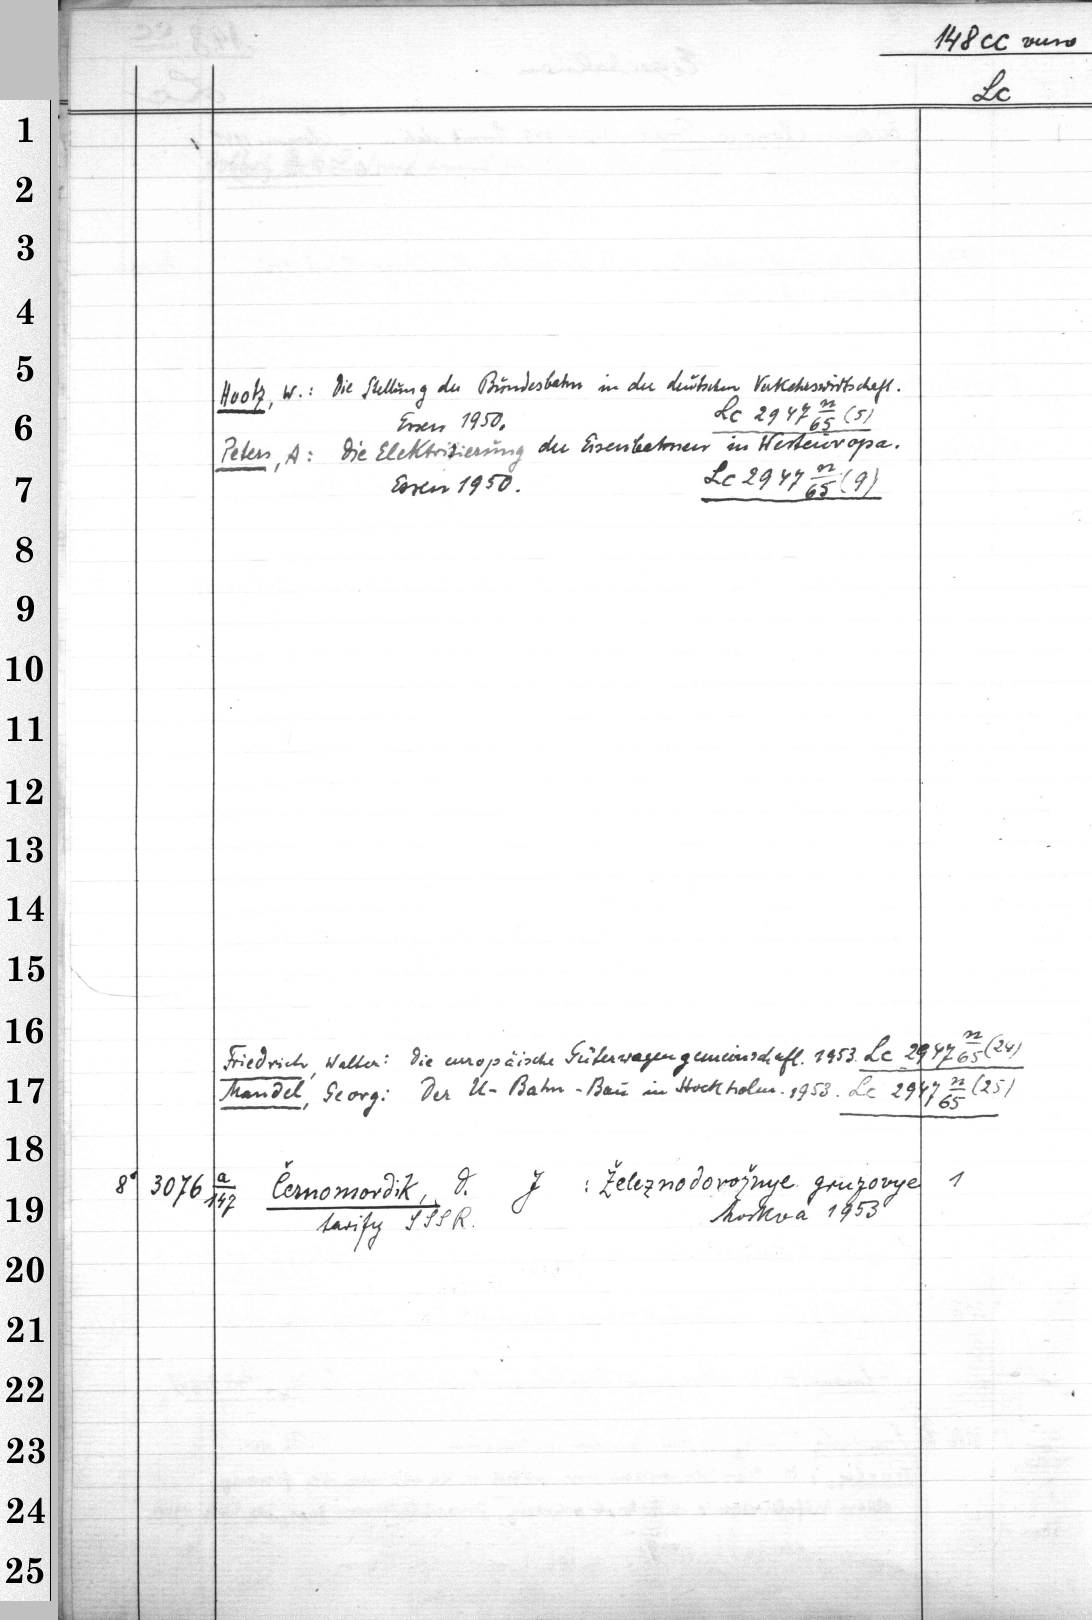 148cc
Lc
1
2
3
4
5
Hootz, W.: Die Stellung der Bundesbahn in der deutschen Verkehrswirtschaft.
6
Essen 1950. Lc 2947 n/65 (5)
Peters, A: Die Elektrisierung der Eisenbahnen in Westeuropa.
7
Essen 1950. Lc 2947 n/65 (9)
8
9
10
11
12
13
14
15
16
Friedrich, Walter: Die europäische Güterwagengemeinschaft. 1953. Lc 2947 n/65 (24)
17
Mandel, Georg: Der U-Bahn-Bau in Stockholm. 1953. Lc 2947 n/65 (25)
18
8° 3076 a/147 Černomordik, D. J : Železnodorožnye gruzovye 1
19
tarify SSSR. Moskva 1953
20
21
22
23
24
25